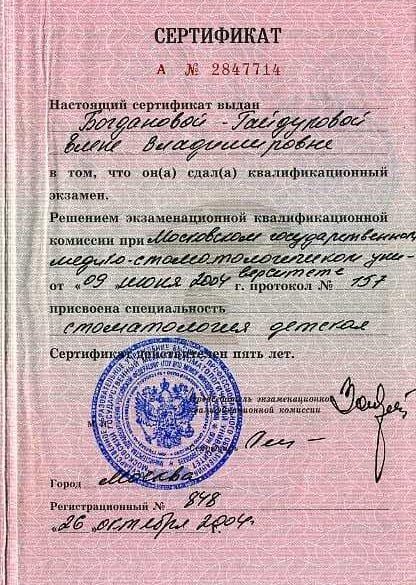 СЕРТИФИКАТ
А № 2847714
Настоящий сертификат выдан
Богдановой-Гайдуровой
Елене Владимировне
в том, что он(а) сдал(а) квалификационный
экзамен.
Решением экзаменационной квалификационной
комиссии при Московском государственном
медико-стоматологическом уни-
верситете
от «09 июня 2004 г. протокол № 157
присвоена специальность
стоматология детская
Сертификат действителен пять лет.
Председатель экзаменационно
квалификационной комиссии
Город Москва
Регистрационный № 848
«26 октября 2004г.